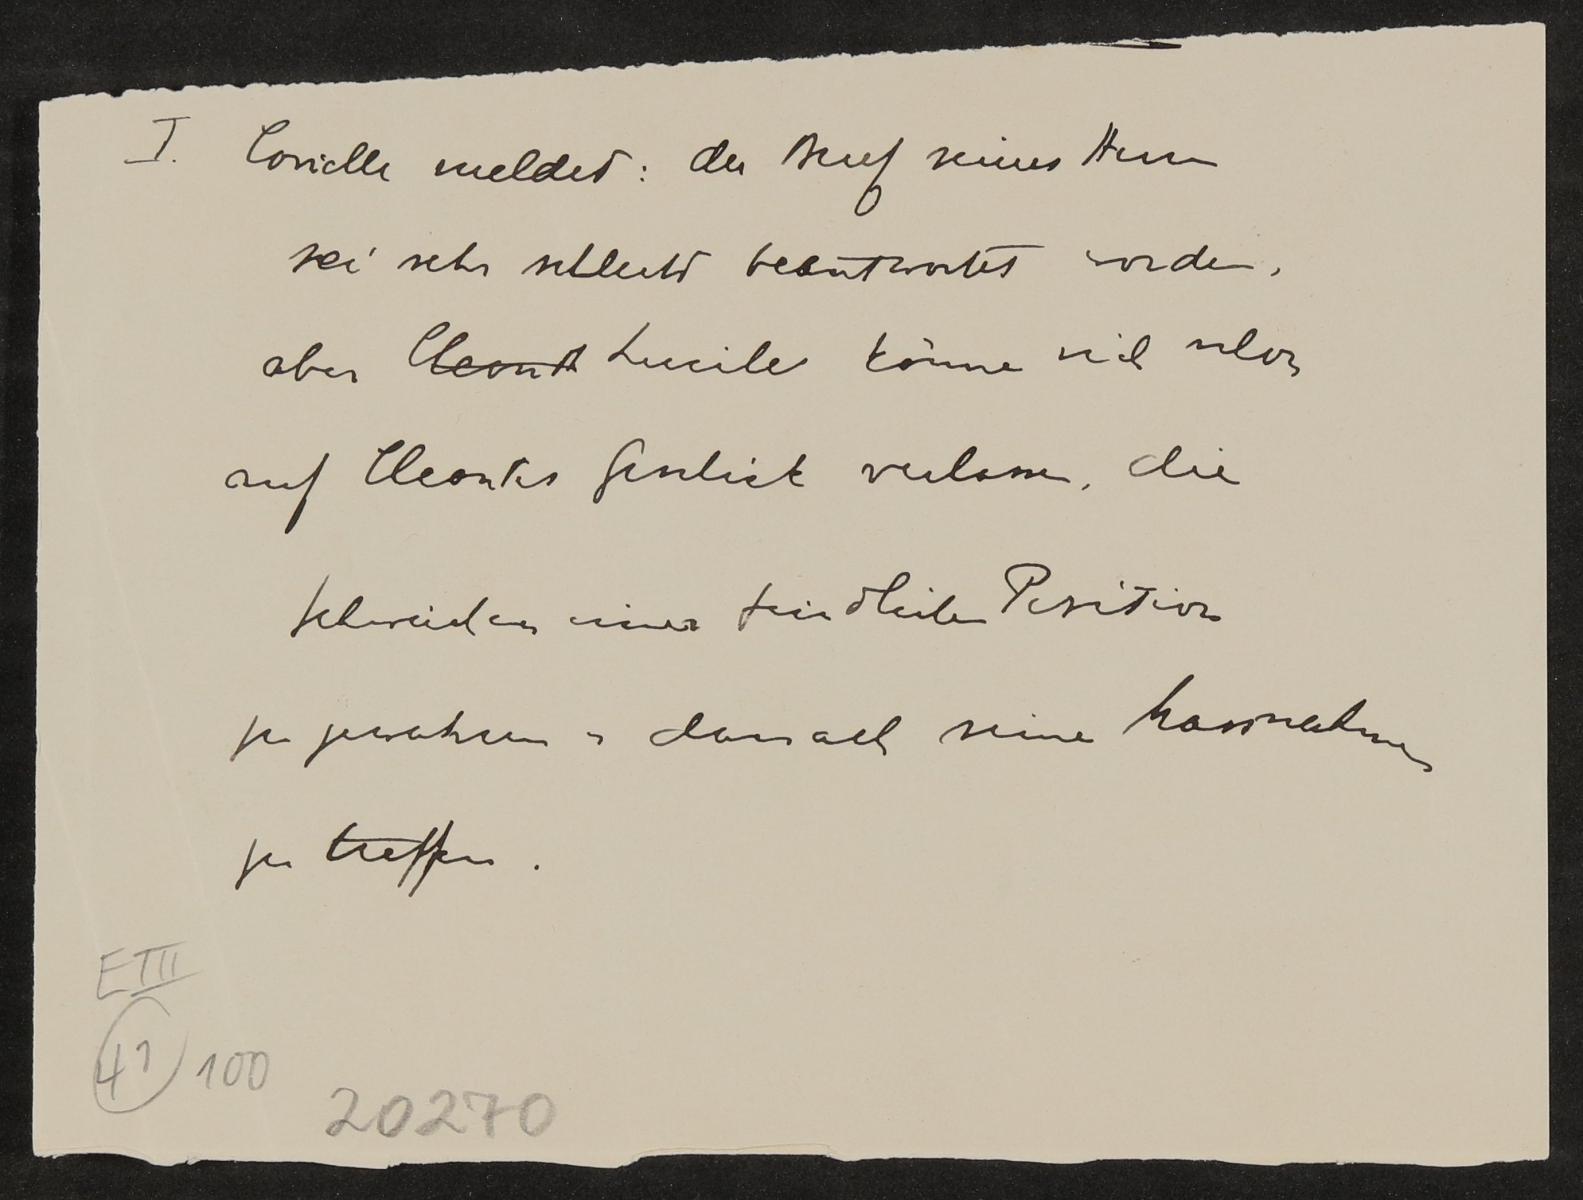 I. Covielle meldet: der Brief seines Herrn
sei sehr schlecht beantwortet worden,
aber Cleont Lucile könne sich schon
auf Cleontes Geschick verlassen, die
Schwächen einer feindlichen Position
zu gewahren u danach seine Massnahmen
zu treffen.
E III
41 100
20270